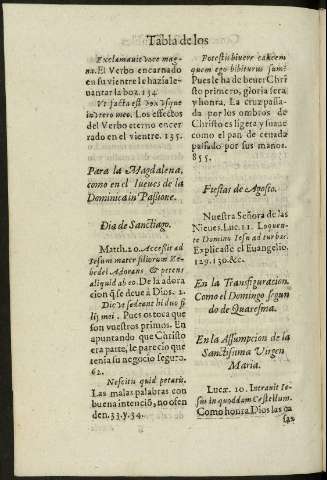 Tabla de los
Exclamauit voce mag-
na. El Verbo encarnado
en su vientre le hazía le-
uantar la boz. 134.
Vt facta est vox vsque
in vtero meo. Los effectos
del Verbo eterno encer
rado en el vientre. 135.
Para la Magdalena,
como en el Iueues de la
Dominica in Passione.
Dia de Sanctiago.
Matth. 20. Accessit ad
Iesum mater filiorum Ze-
bedei Adorans & petens
aliquid ab eo. De la adora
cion q̃ se deue à Dios. 1.
Dic vt sedeant hi duo fi
lij mei. Pues os toca que
son vuestros primos. En
apuntando que Christo
era parte, le parecio que
tenia su negocio seguro.
62.
Nescitis quid petatis.
Las malas palabras con
buena intenció, no ofen
den. 33. y. 34.
Potestis bibere calicem
quem ego bibiturus sum?
Pues le ha de beuer Chri
sto primero, gloria sera
y honra. La cruz passa-
da por los ombros de
Christo es ligera y suaue
como el pan de ceuada
passado por sus manos.
855.
Fiestas de Agosto.
Nuestra Señora de las
Nieues. Luc. 11. Loquen-
te Domino Iesu ad turbas.
Explicase el Euangelio.
129. 130. &c.
En la Transfiguracion.
Como el Domingo segun
do de Quaresma.
En la Assumpcion de la
Sanctissima Virgen
Maria.
Lucæ. 10. Intrauit Ie-
sus in quoddam Castellum.
Como honra Dios las ca
sas